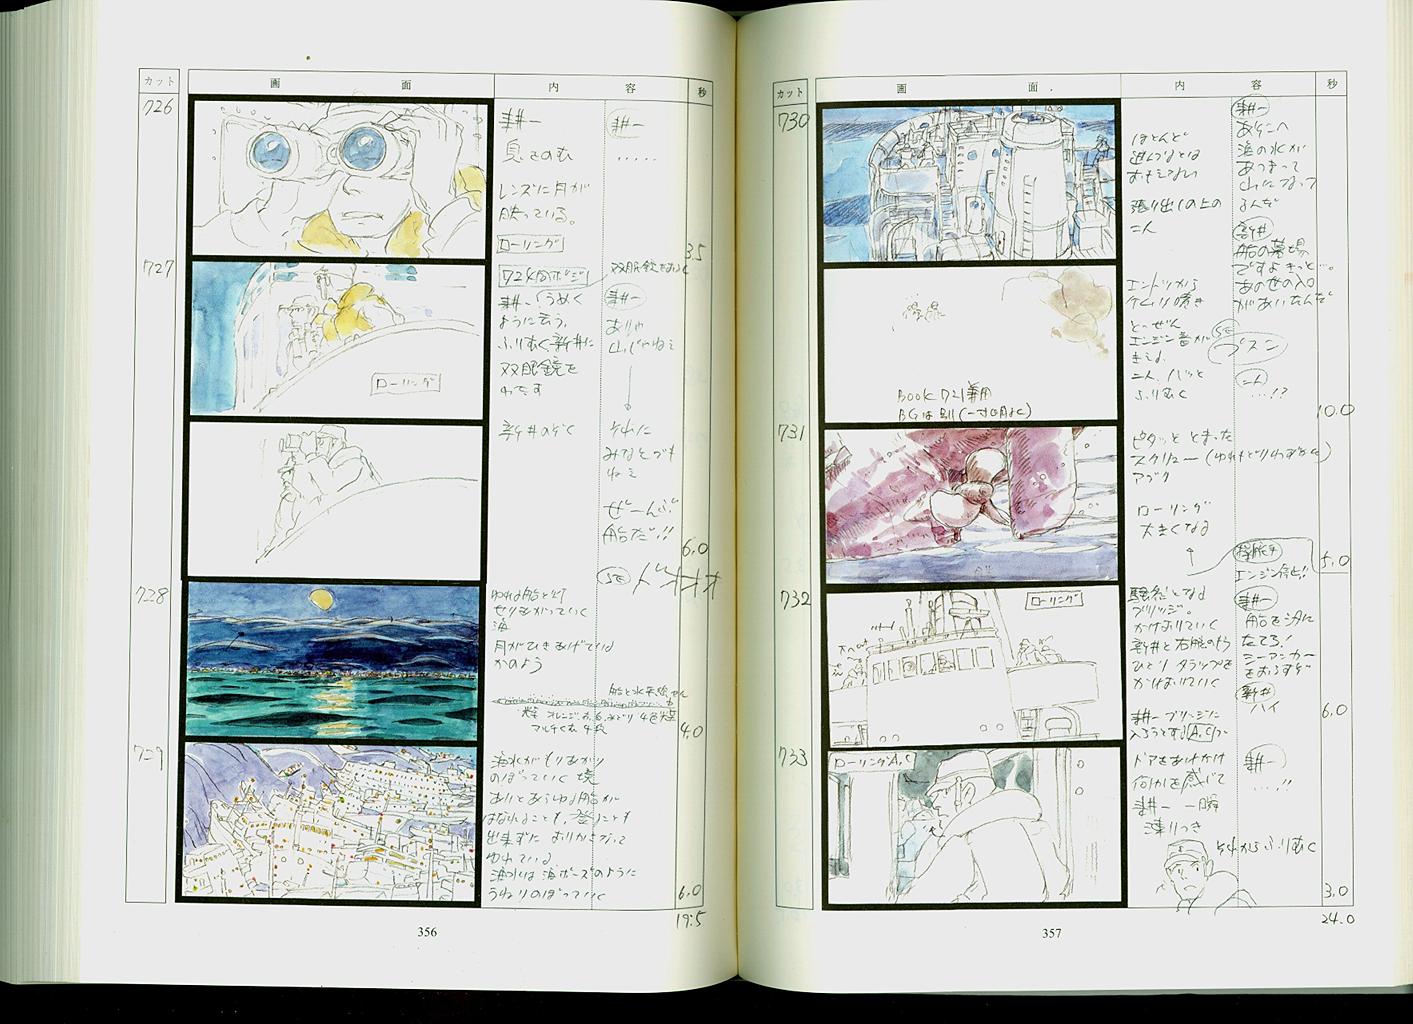 カット
画 面
内 容
秒
726
耕一
息をのむ
レンズに月が
映っている。
ローリング
耕一
・・・・・
3.5
727
耕一 うめく
ように云う、
ふりむく新井に
双眼鏡を
わたす
ローリング
双眼鏡を
耕一
ありゃ
山じゃねえ
新井のぞく
それに
みなとでも
ねえ
ぜーんぶ
船だ!!
6.0
SE
728
ゆれる船と灯
せりあがっていく
海
月がひきあげている
かのよう
4.0
729
海水がもりあがり
のぼっていく境
ありとあらゆる船が
はなれることも、登ることも
出来ずに おりかさなって
ゆれている
海水は
うねりのぼっていく
6.0
19.5
356
カット
画 面
内 容
秒
730
ほとんど
進んでるとは
おもえない
張り出しの上の
二人
耕一
あそこへ
海の水が
あつまって
山になって
るんだ
新井
船の墓場
ですよきっと…。
あの世の入口
があいたんだ
エントツから
ケムリ
とーぜん
エンジン音が
きえる
二人、ハッと
ふりむく
SE
プスン
二人
…!?
BOOK 721兼用
BGは別(一寸
10.0
731
ピタッと とまった
スクリュー
アブク
ローリング
大きくなる
5.0
操舵手
エンジン停止!
732
ローリング
騒然となる
ブリッジ。
かけおりていく
新井と右舷のもう
ひとり タラップを
かけおりていく
耕一
船を汐に
たてろ!
シーアンカー
をおろすぞ
新井
ハイ
耕一 ブリッジに
入ろうとする
6.0
733
ローリングA,C
ドアをあけかけ
何かを感じて
耕一 一瞬
凍りつき
それからふりむく
耕一
….!!
3.0
24.0
357